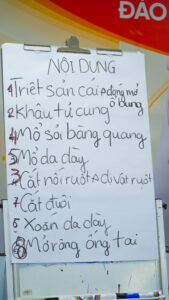 ĐÁO
NỘI DUNG
1 Triết sản cái + động mở ổ bụng
2 Khâu tử cung
4 Mổ sỏi bàng quang
5 Mổ dạ dày
3 Cắt nối ruột + dị vật ruột
7 Cắt đuôi
6 Xoắn dạ dày
8 Mở rộng ống tai